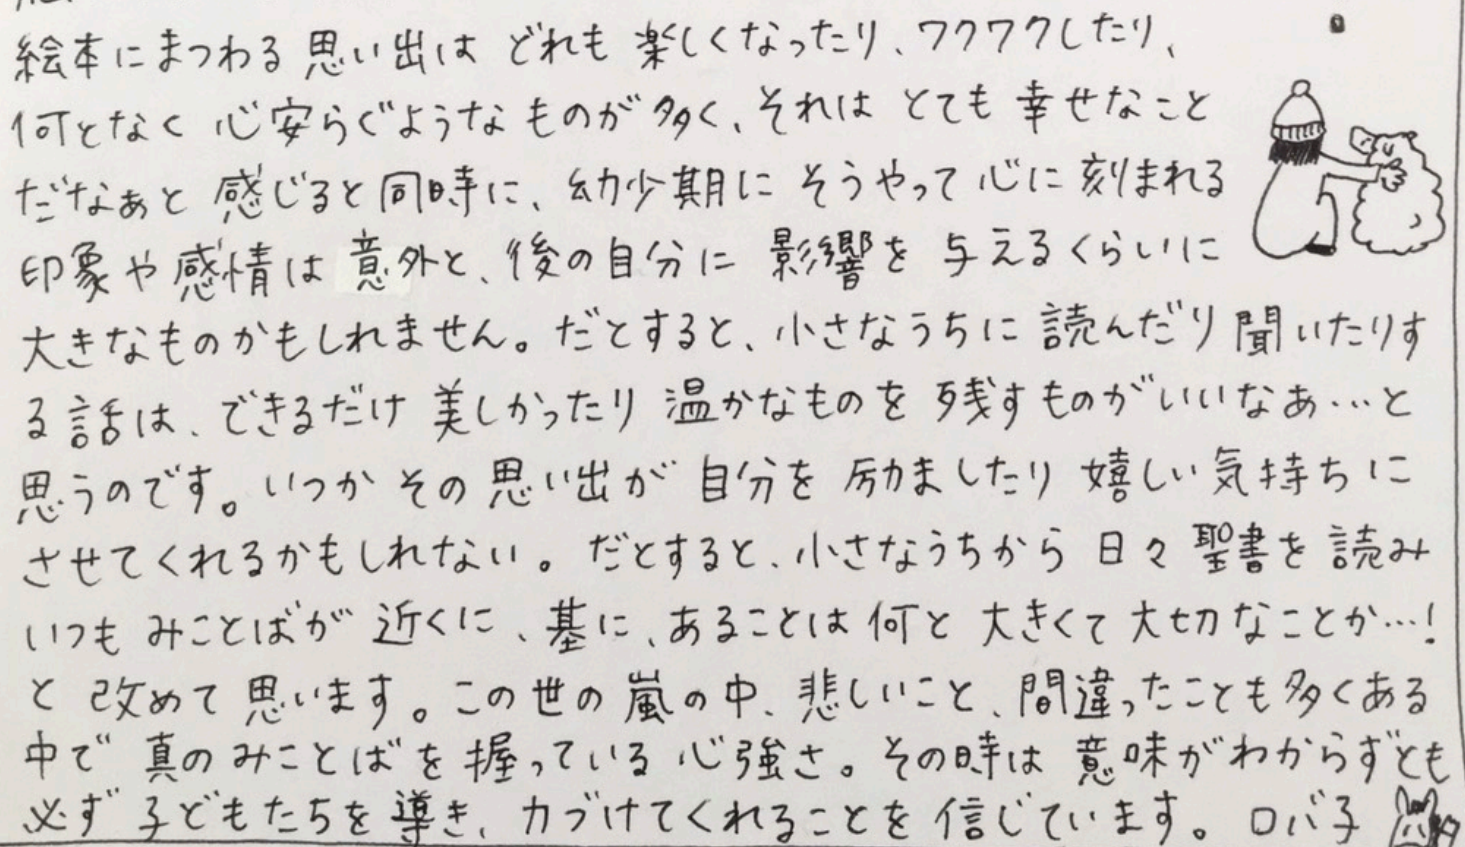 絵本にまつわる思い出は どれも 楽しくなったり、ワクワクしたり、
何となく 心安らぐような ものが 多く、それは とても 幸せなこと
だなぁと 感じると 同時に、幼少期に そうやって 心に 刻まれる
印象や感情は 意外と、後の自分に 影響を 与えるくらいに
大きなものかもしれません。だとすると、小さなうちに 読んだり 聞いたりす
る 話は、できるだけ 美しかったり 温かなものを 残すものがいいなあ…と
思うのです。いつか その 思い出が 自分を 励ましたり 嬉しい気持ちに
させてくれるかもしれない。だとすると、小さなうちから 日々 聖書を 読み
いつも みことばが 近くに、基に、あることは 何と 大きくて 大切なことか…!
と 改めて 思います。この世の 嵐の中、悲しいこと、間違ったことも多くある
中で 真の みことばを 握っている 心強さ。その時は 意味がわからずとも
必ず 子どもたちを 導き、力づけてくれることを 信じています。 ロバ子